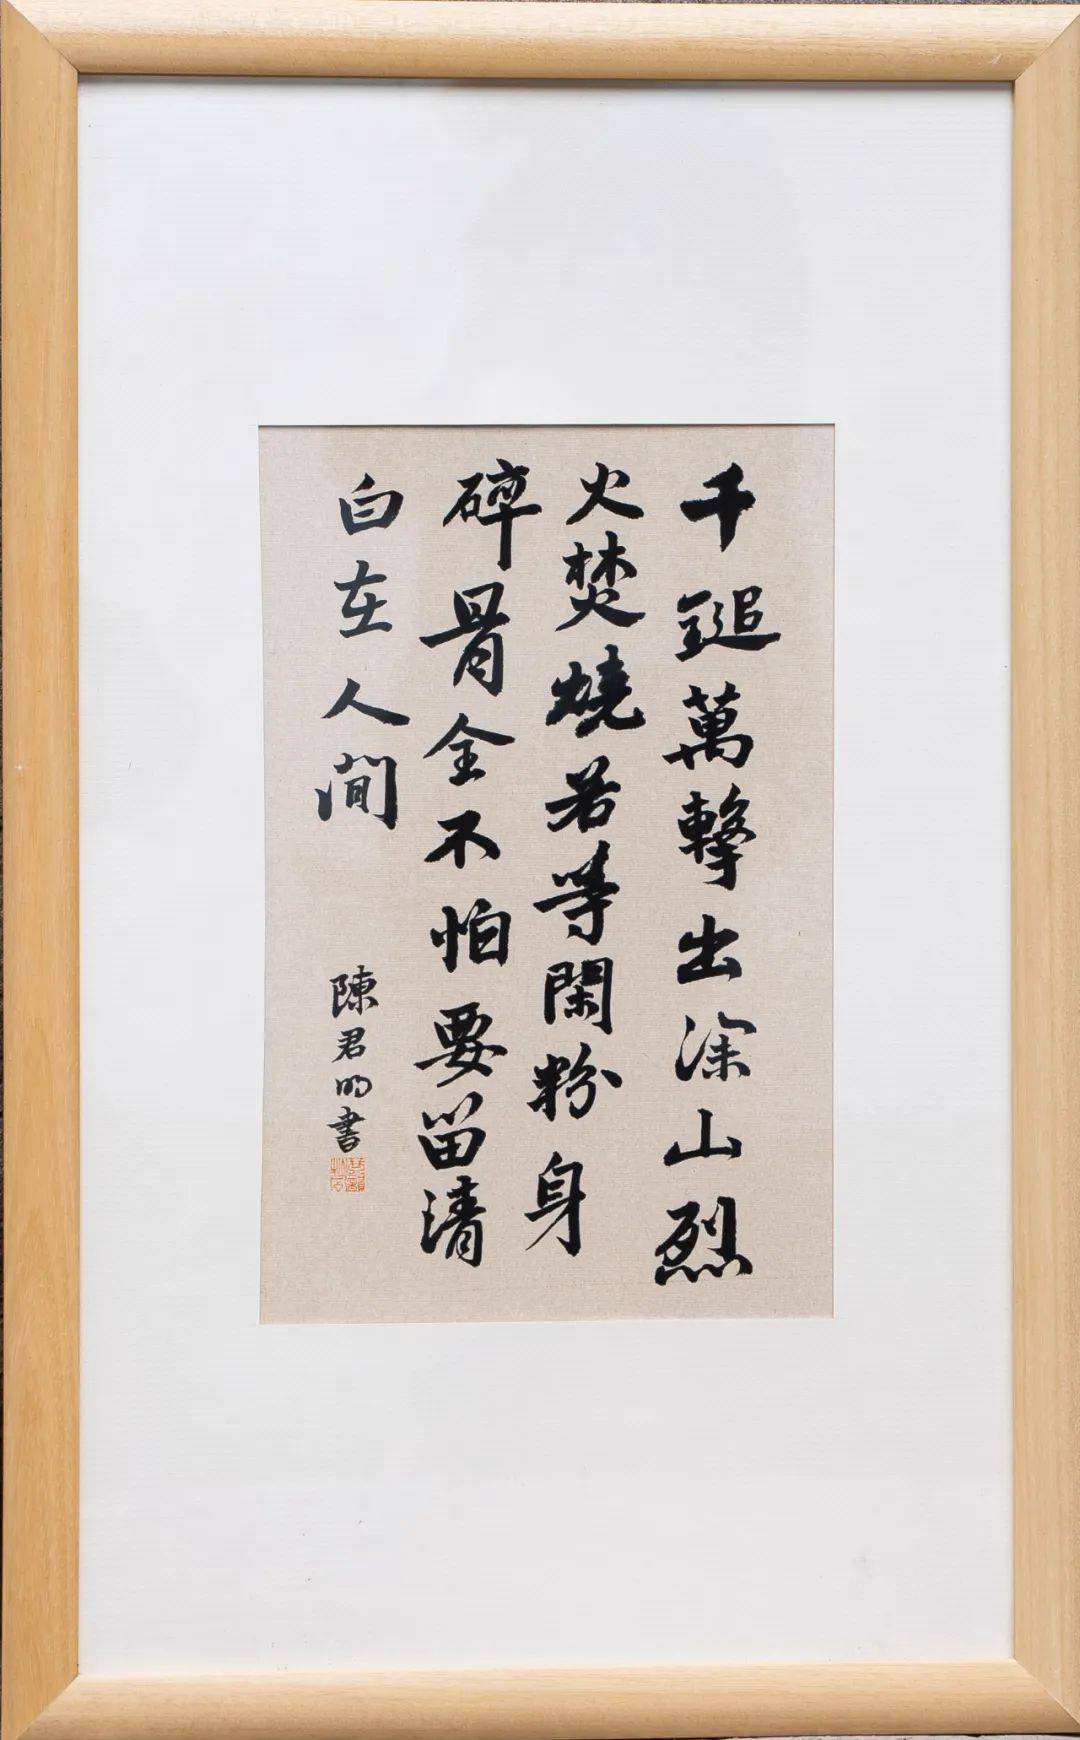 千鎚萬擊出深山烈
火焚燒若等閑粉身
碎骨全不怕要留清
白在人間
陳君明書